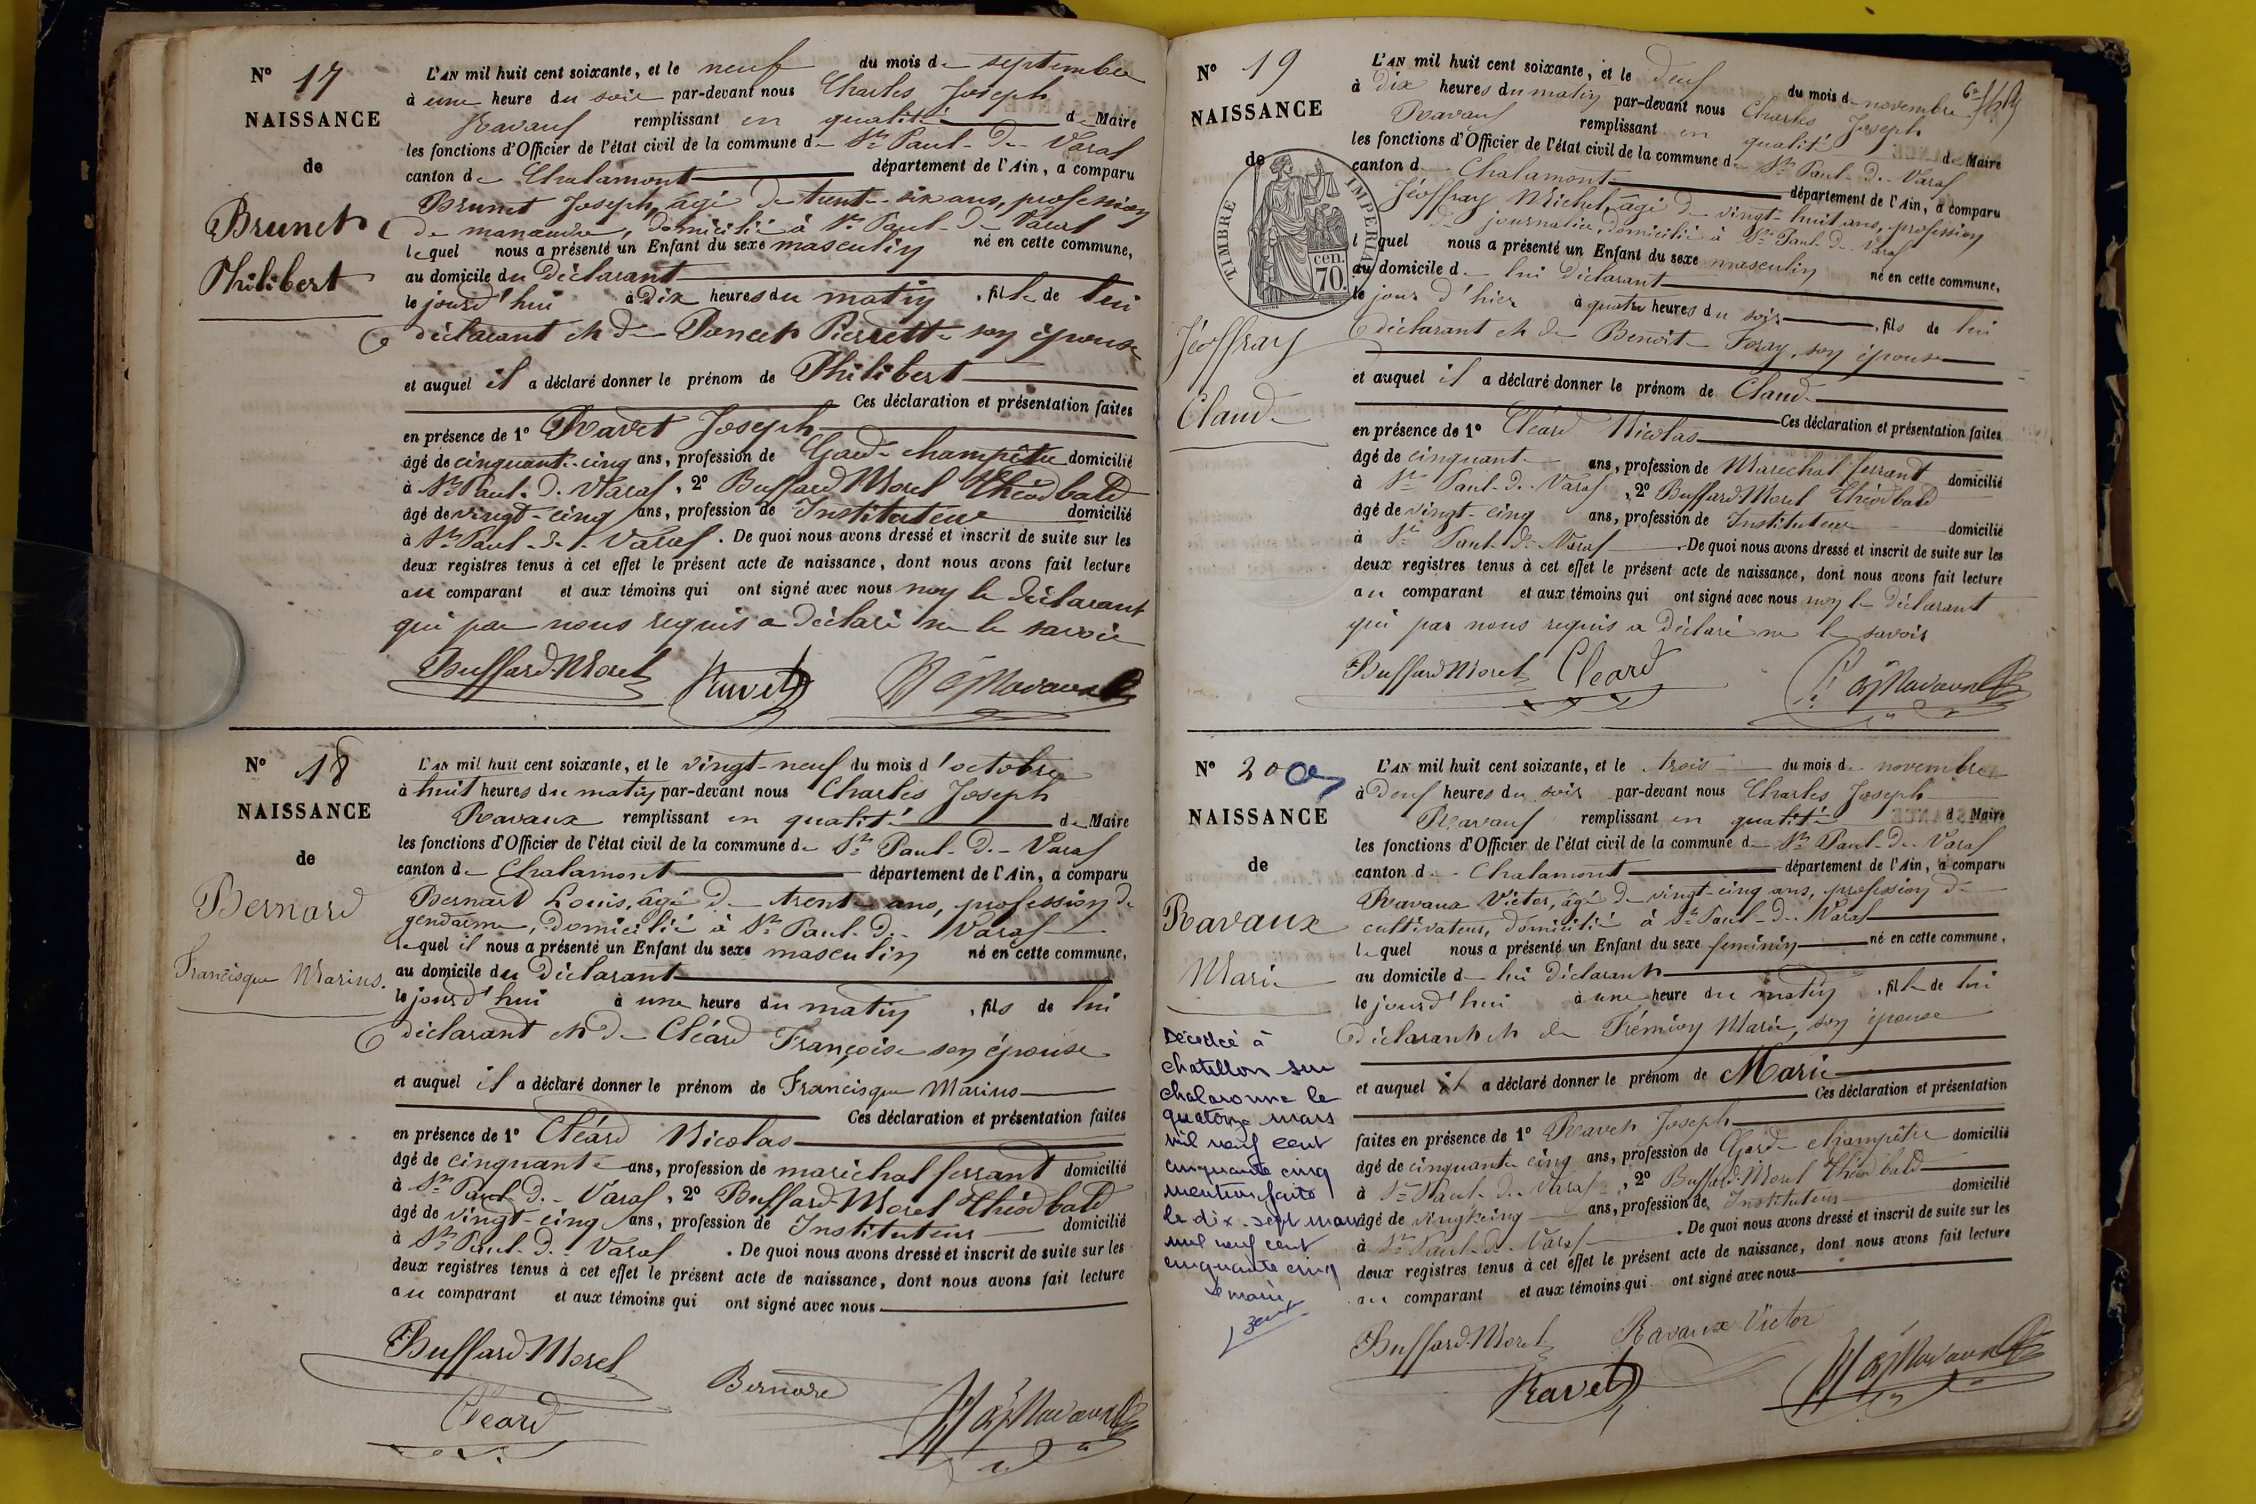 N° 17
NAISSANCE
de
Brunet
Philibert
L'AN mil huit cent soixante, et le neuf du mois de septembre
à une heure du soir par-devant nous Charles Joseph
Ravaux remplissant en qualité de Maire
les fonctions d'Officier de l'état civil de la commune de St Paul-de-Varax
canton de Chalamont département de l'Ain, a comparu
Brunet Joseph, âgé de trente-six ans, profession
de manœuvre, domicilié à St Paul-de-Varax
lequel nous a présenté un Enfant du sexe masculin né en cette commune,
au domicile du déclarant
le jourd'hui à dix heures du matin, fils de lui
déclarant et de Poncet Pierrette son épouse
et auquel il a déclaré donner le prénom de Philibert
Ces déclaration et présentation faites
en présence de 1° Ravet Joseph
âgé de cinquante-cinq ans, profession de Garde-champêtre domicilié
à St Paul-de-Varax, 2° Buffard-Morel Théodbald
âgé de vingt-cinq ans, profession de Instituteur domicilié
à St Paul-de-Varax. De quoi nous avons dressé et inscrit de suite sur les
deux registres tenus à cet effet le présent acte de naissance, dont nous avons fait lecture
au comparant et aux témoins qui ont signé avec nous non le déclarant
qui par nous requis a déclaré ne le savoir
Buffard-Morel Ravet Ravaux
N° 18
NAISSANCE
de
Bernard
Francisque Marius.
L'AN mil huit cent soixante, et le vingt-neuf du mois d'octobre
à huit heures du matin par-devant nous Charles Joseph
Ravaux remplissant en qualité de Maire
les fonctions d'Officier de l'état civil de la commune de St Paul-de-Varax
canton de Chalamont département de l'Ain, a comparu
Bernard Louis, âgé de trente ans, profession de
gendarme, domicilié à St Paul-de-Varax
lequel il nous a présenté un Enfant du sexe masculin né en cette commune,
au domicile du déclarant
le jourd'hui à une heure du matin, fils de lui
déclarant et de Cléard Françoise son épouse
et auquel il a déclaré donner le prénom de Francisque Marius
Ces déclaration et présentation faites
en présence de 1° Cléard Nicolas
âgé de cinquante ans, profession de maréchal ferrant domicilié
à St Paul-de-Varax, 2° Buffard-Morel Théodbald
âgé de vingt-cinq ans, profession de Instituteur domicilié
à St Paul-de-Varax. De quoi nous avons dressé et inscrit de suite sur les
deux registres tenus à cet effet le présent acte de naissance, dont nous avons fait lecture
au comparant et aux témoins qui ont signé avec nous
Buffard-Morel
Cleard Bernard Ravaux
N° 19
NAISSANCE
de
TIMBRE IMPERIAL
cen. 70.
Jéoffray
Claude
L'AN mil huit cent soixante, et le deux du mois de novembre
à dix heures du matin par-devant nous Charles Joseph
Ravaux remplissant en qualité de Maire
les fonctions d'Officier de l'état civil de la commune de St Paul-de-Varax
canton de Chalamont département de l'Ain, a comparu
Jéoffray Michel, âgé de vingt-huit ans, profession
de journalier, domicilié à St Paul-de-Varax
lequel nous a présenté un Enfant du sexe masculin né en cette commune,
au domicile de lui déclarant
le jour d'hier à quatre heures du soir, fils de lui
déclarant et de Benoîte Foray, son épouse
et auquel il a déclaré donner le prénom de Claude
Ces déclaration et présentation faites
en présence de 1° Cléard Nicolas
âgé de cinquante ans, profession de Maréchal ferrant domicilié
à St Paul-de-Varax, 2° Buffard-Morel Théodbald
âgé de vingt-cinq ans, profession de Instituteur domicilié
à St Paul-de-Varax. De quoi nous avons dressé et inscrit de suite sur les
deux registres tenus à cet effet le présent acte de naissance, dont nous avons fait lecture
au comparant et aux témoins qui ont signé avec nous non le déclarant
qui par nous requis a déclaré ne le savoir
Buffard-Morel Cleard Ravaux
N° 20
NAISSANCE
de
Ravaux
Marie
Décédée à
Chatillon sur
Chalaronne le
quatorze mars
mil neuf cent
cinquante cinq
mention faite
le dix-sept mars
mil neuf cent
cinquante cinq
Le maire
L'AN mil huit cent soixante, et le trois du mois de novembre
à deux heures du soir par-devant nous Charles Joseph
Ravaux remplissant en qualité de Maire
les fonctions d'Officier de l'état civil de la commune de St Paul-de-Varax
canton de Chalamont département de l'Ain, a comparu
Ravaux Victor, âgé de vingt-cinq ans, profession de
cultivateur, domicilié à St Paul-de-Varax
lequel nous a présenté un Enfant du sexe féminin né en cette commune,
au domicile de lui déclarant
le jourd'hui à une heure du matin, fille de lui
déclarant et de Frémion Marie, son épouse
et auquel il a déclaré donner le prénom de Marie
Ces déclaration et présentation
faites en présence de 1° Ravet Joseph
âgé de cinquante cinq ans, profession de Garde-champêtre domicilié
à St Paul-de-Varax, 2° Buffard-Morel Théodbald
âgé de vingt-cinq ans, profession de Instituteur domicilié
à St Paul-de-Varax. De quoi nous avons dressé et inscrit de suite sur les
deux registres tenus à cet effet le présent acte de naissance, dont nous avons fait lecture
au comparant et aux témoins qui ont signé avec nous
Buffard-Morel Ravaux Victor
Ravet Ravaux